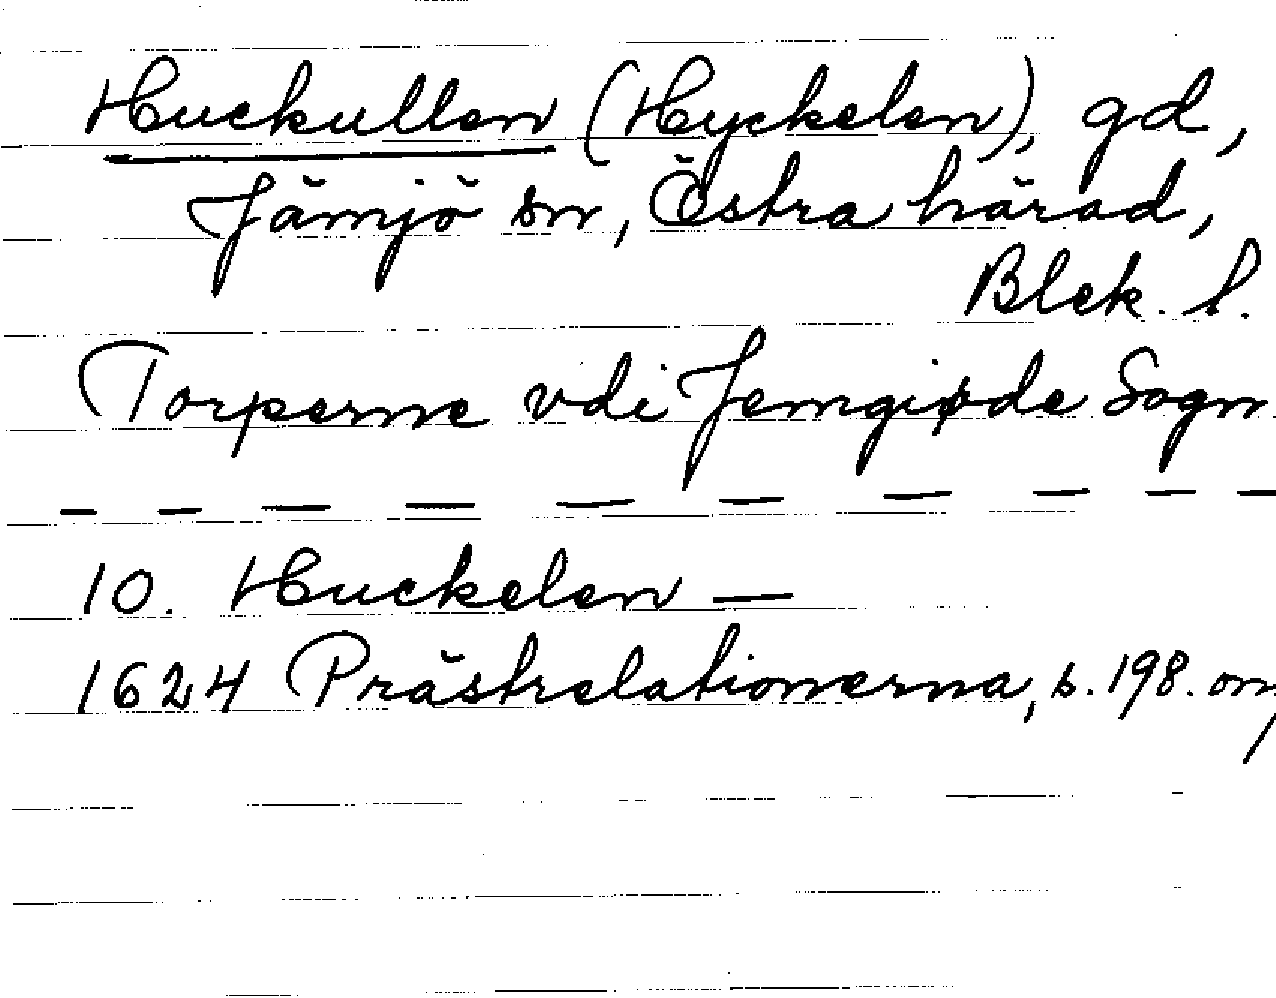 Huckullen (Hyckelen), gd,
Jämjö sn, Östra härad,
Blek. l.
Torperne vdi Jemgiøde Sogn
— — — — — — — — — —
10. Huckelen —
1624 Prästrelationerna, s. 198. om